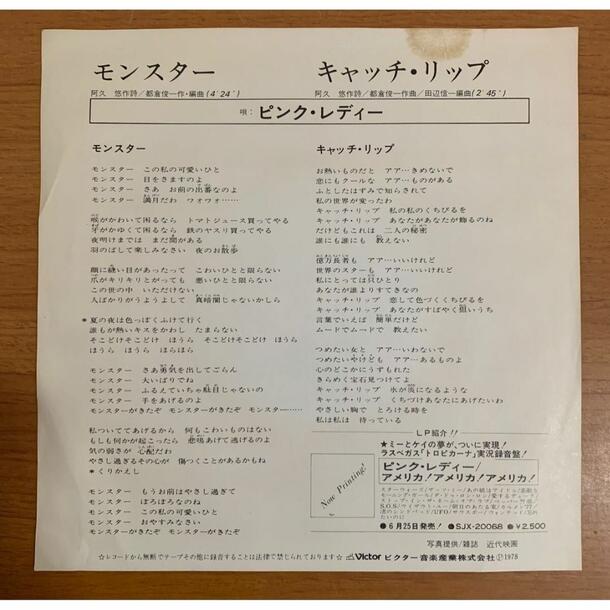 モンスター
阿久 悠作詩/都倉俊一作・編曲(4´24˝)
キャッチ・リップ
阿久 悠作詩/都倉俊一作曲/田辺信一編曲(2´45˝)
唄:ピンク・レディー
モンスター
モンスター この私の可愛いひと
モンスター 目をさますのよ
モンスター さあ お前の出番なのよ
モンスター 満月だわ ワォワォ……
喉がかわいて困るなら トマトジュース買ってやる
牙がかゆくて困るなら 鉄のヤスリ買ってやる
夜明けまでは まだ間がある
羽のばして楽しみなさい 夜のお散歩
顔に縫い目があったって こわいひとと限らない
爪がキリキリとがっても 悪いひとと限らない
この世の中 いただけない
人ばかりがうようよして 真暗闇じゃないかしら
*夏の夜は色っぽくふけて行く
誰もが熱いキスをかわし たまらない
そこどけそこどけ ほうら そこどけそこどけ ほうら
ほうら ほうら ほらほら
モンスター さあ勇気を出してごらん
モンスター 大いばりでね
モンスター ふるえていちゃ駄目じゃないの
モンスター 手をあげるのよ
モンスターがきたぞ モンスターがきたぞ モンスター……
私ついててあげるから 何もこわいものはない
もしも何かが起こったら 悲鳴あげて逃げるのよ
気の弱さが 心配だわ
やさし過ぎるその心が 傷つくことがあるかもね
*くりかえし
モンスター もうお前はやさし過ぎて
モンスター ぼろぼろなのね
モンスター この私の可愛いひと
モンスター おやすみなさい
モンスターがきたぞ モンスターがきたぞ
キャッチ・リップ
お熱いものだと アア…きめないで
恋にもクールな アア…ものがある
ふとしたはずみで知らされて
私の世界が変ったわ
キャッチ・リップ 私の私のくちびるを
キャッチ・リップ あなたがあなたが飾るのね
だけどもこれは 二人の秘密
誰にも誰にも 教えない
億万長者も アア…いいけれど
世界のスターも アア…いいけれど
私にとっては只ひとり
あなたが誰よりすてきなの
キャッチ・リップ 恋して色づくくちびるを
キャッチ・リップ あなたがすばやく狙いうち
言葉でいえば 簡単だけど
ムードでムードで 教えたい
つめたい女と アア…いわないで
つめたいやけども アア…あるものよ
心のどこかにうずもれた
きらめく宝石見つけてよ
キャッチ・リップ 氷が炎になるような
キャッチ・リップ くちづけあなたにあげたいわ
やさしい胸で とろける時を
私は私は 待っている
LP紹介!!
★ミーとケイの夢が、ついに実現!
ラスベガス「トロピカーナ」実況録音盤!
Now Printing!
ピンク・レディー/
アメリカ!アメリカ!アメリカ!
●6月25日発売! ●SJX-20068 ●¥2,500
写真提供/雑誌 近代映画
☆レコードから無断でテープその他に録音することは法律で禁じられております☆
Victor ビクター音楽産業株式会社 Ⓟ1978